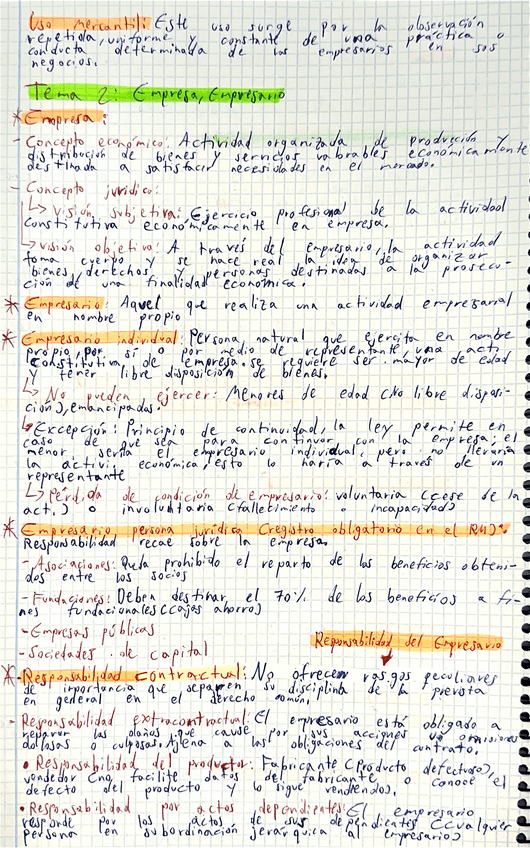 Uso mercantil: Este uso surge por la observación
repetida, uniforme y constante de una práctica o
conducta determinada de los empresarios en sus
negocios.
Tema 2: Empresa, Empresario
* Empresa:
- Concepto económico: Actividad organizada de produción y
distribución de bienes y servicios valorables económicamente
destinada a satisfacer necesidades en el mercado.
- Concepto jurídico:
↳ Visión subjetiva: Ejercicio profesional de la actividad
constitutiva económicamente en empresa.
↳ visión objetiva: A través del empresario, la actividad
toma cuerpo y se hace real la idea de organizar
bienes, derechos y personas destinadas a la prosecu-
ción de una finalidad económica.
* Empresario: Aquel que realiza una actividad empresarial
en nombre propio
* Empresario individual: Persona natural que ejercita en nombre
propio, por sí o por medio de representante, una acti.
Constitutiva de empresa. se requiere ser mayor de edad
y tener libre disposición de bienes.
↳ No pueden ejercer: Menores de edad (No libre disposi-
ción), emancipados.
↳ Excepción: Principio de continuidad, la ley permite en
caso de que sea para continuar con la empresa; el
menor sería el empresario individual, pero no llevaría
la activi. económica, esto lo haría a través de un
representante
↳ Pérdida de condición de empresario: voluntaria (cese de la
act.) o involuntaria (fallecimiento o incapacidad)
* Empresario persona jurídica (registro obligatorio en el RM):
Responsabilidad recae sobre la empresa
- Asociaciones: Queda prohibido el reparto de los beneficios obteni-
dos entre los socios
- Fundaciones: Deben destinar el 70% de los beneficios a fi-
nes fundacionales (cajas ahorro)
- Empresas públicas
- Sociedades de capital
Responsabilidad del Empresario
* - Responsabilidad contractual: No ofrecen rasgos peculiares
de importancia que separen su disciplina de la prevista
en general en el derecho común.
- Responsabilidad extracontractual: El empresario está obligado a
reparar los daños que cause por sus acciones u omisiones
dolosas o culposas. Ajena a las obligaciones del contrato.
• Responsabilidad del productor: Fabricante (Producto defectuoso),
vendedor (no facilite datos del fabricante o conoce el
defecto del producto y lo sigue vendiendo).
• Responsabilidad por actos dependientes: El empresario
responde por los actos de sus dependientes (Cualquier
persona en subordinación jerárquica al empresario)